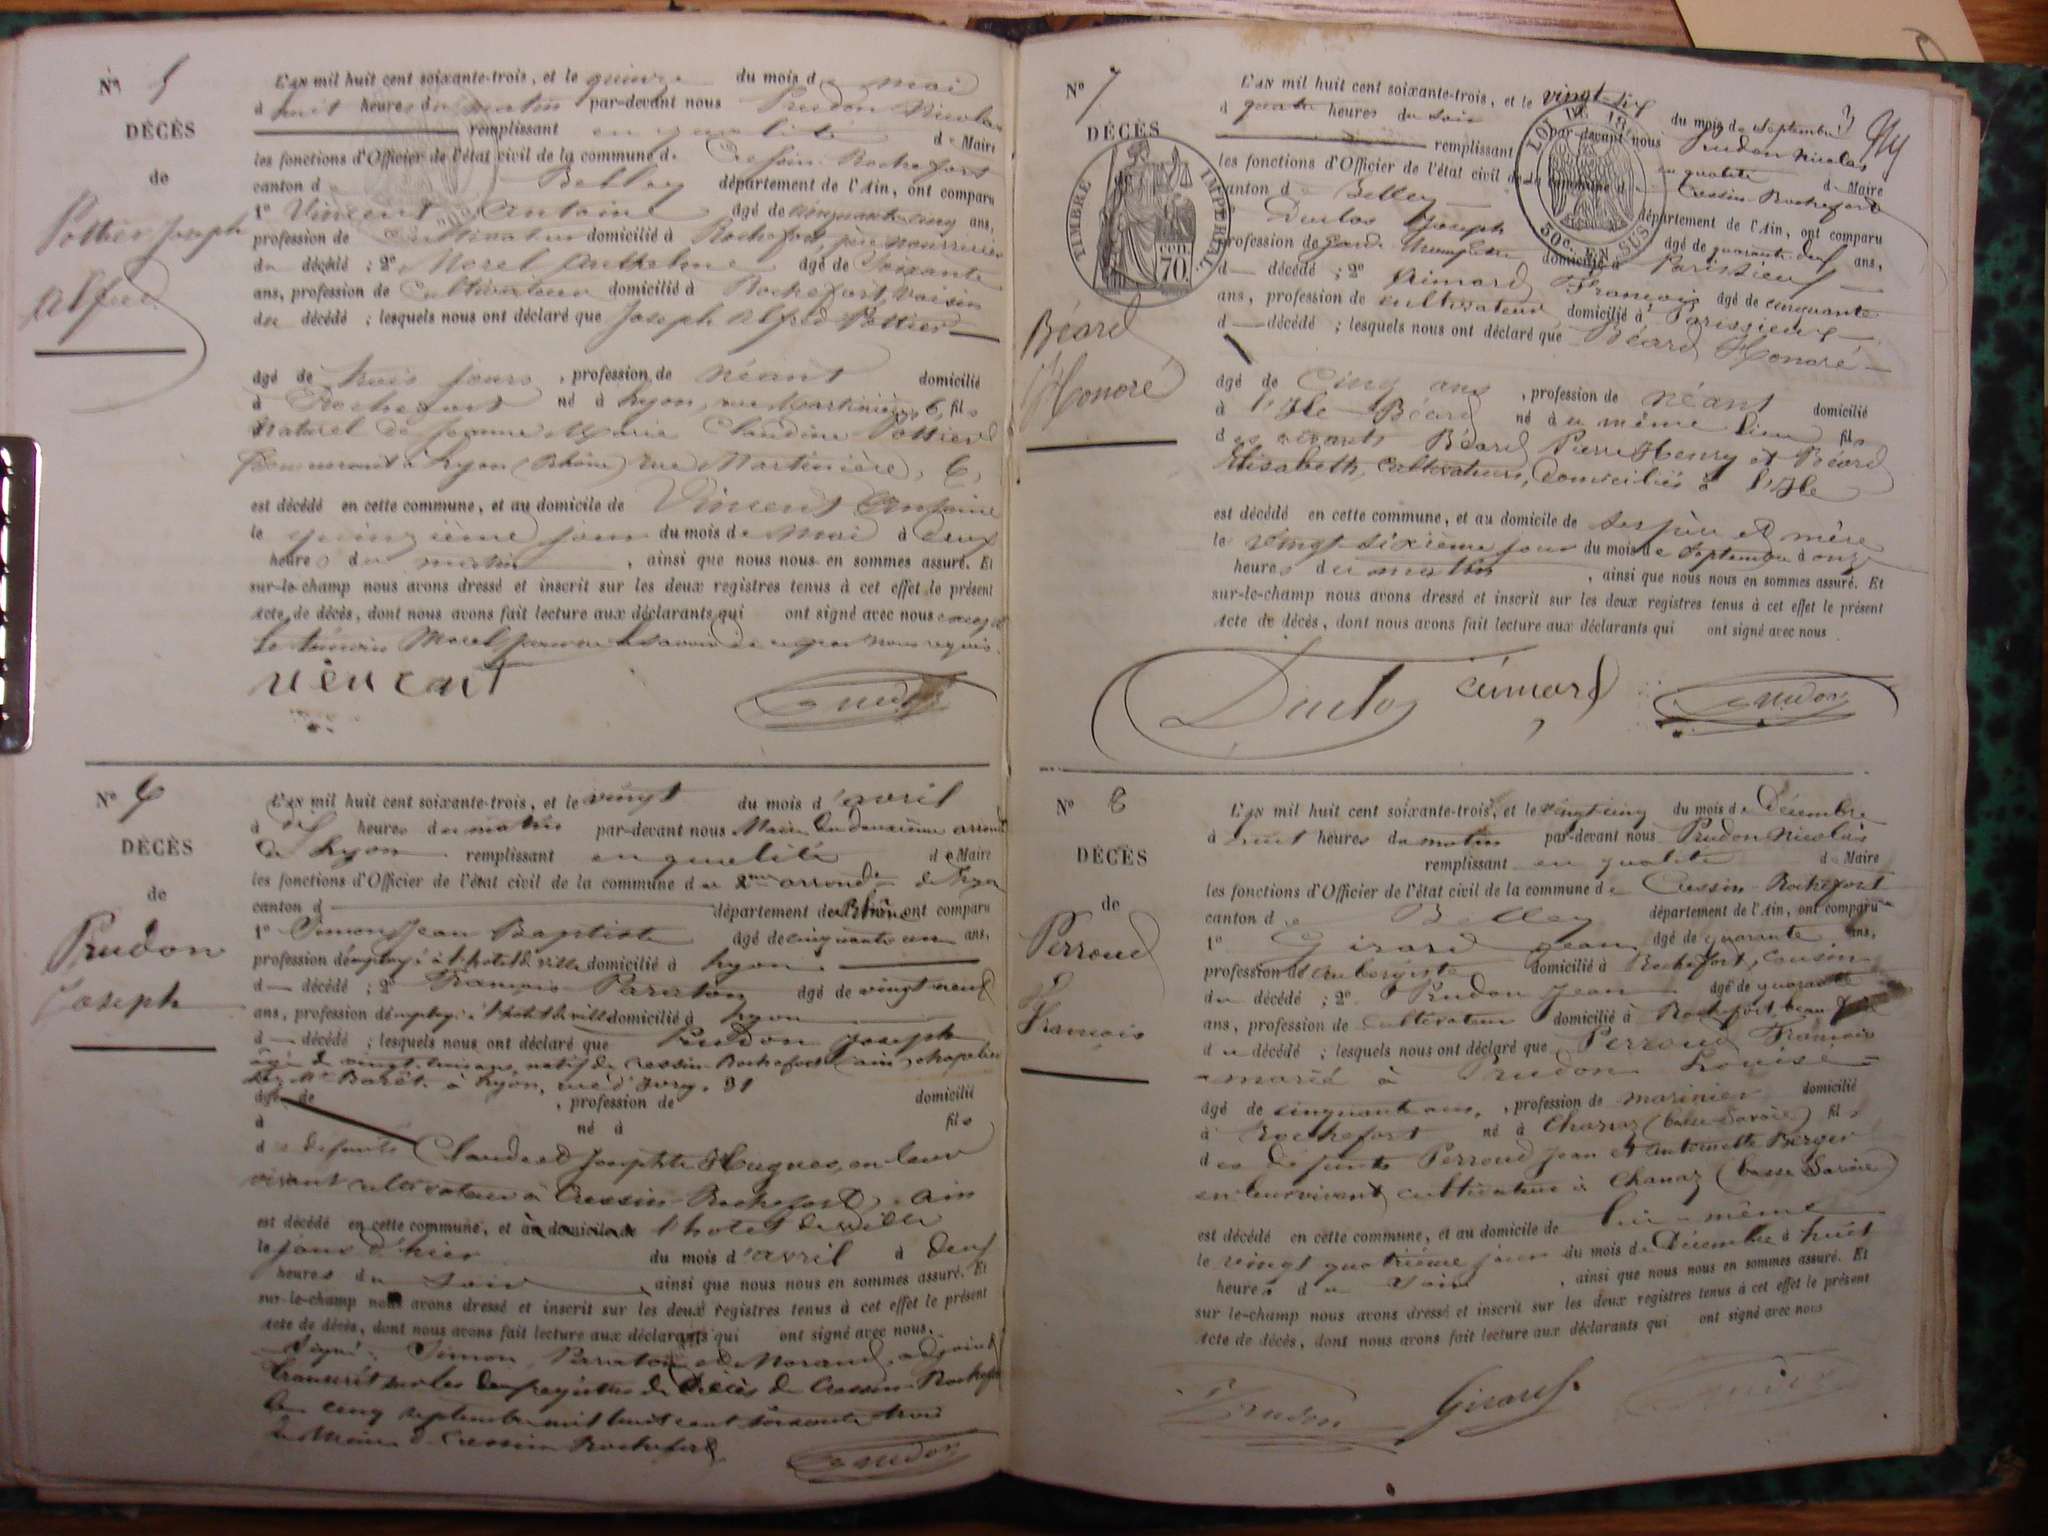 Nº 5
DÉCÈS
de
Pottier Joseph
Alfred
L'AN mil huit cent soixante-trois, et le quinze du mois de mai
à huit heures du matin par-devant nous Prudon Nicolas
remplissant en qualité de Maire
les fonctions d'Officier de l'état civil de la commune de Cressin-Rochefort
canton de Belley département de l'Ain, ont comparu
1º Vincent Antoine âgé de cinquante-cinq ans,
profession de cultivateur domicilié à Rochefort, père nourricier
du décédé ; 2º Morel Anthelme âgé de soixante
ans, profession de cultivateur domicilié à Rochefort, voisin
du décédé ; lesquels nous ont déclaré que Joseph Alfred Pottier
âgé de trois jours, profession de néant domicilié
à Rochefort né à Lyon, rue Martinière, 6, fils
naturel de Jeanne Marie Claudine Pottier
demeurant à Lyon (Rhône) rue Martinière, 6,
est décédé en cette commune, et au domicile de Vincent Antoine
le quinzième jour du mois de Mai à deux
heures du matin, ainsi que nous nous en sommes assuré. Et
sur-le-champ nous avons dressé et inscrit sur les deux registres tenus à cet effet le présent
Acte de décès, dont nous avons fait lecture aux déclarants qui ont signé avec nous excepté
le témoin Morel pour ne le savoir de ce par nous requis.
vencent Prudon
Nº 6
DÉCÈS
de
Prudon
Joseph
L'AN mil huit cent soixante-trois, et le vingt du mois d'avril
à heures du matin par-devant nous Maire du deuxième arrond
de Lyon remplissant en qualité de Maire
les fonctions d'Officier de l'état civil de la commune du 2me arrondt de Lyon
canton d département du Rhône ont comparu
1º Simon Jean Baptiste âgé de cinquante un ans,
profession d'employé à l'hotel de ville domicilié à Lyon
d décédé ; 2º François Paraton âgé de vingt neuf
ans, profession d'employé à l'hotel de ville domicilié à Lyon
d décédé ; lesquels nous ont déclaré que Prudon Joseph
âgé de vingt ans, natif de Cressin-Rochefort (ain) chapelier
chez Mr Baret à Lyon, rue d'Ivry, 31
âgé de, profession de domicilié
à né à fils
des défunts Claude et Josephte Hugues, en leur
vivant cultivateurs à Cressin-Rochefort, Ain
est décédé en cette commune, et au domicile de l'hotel de ville
le jour d'hier du mois d'avril à deux
heures du soir, ainsi que nous nous en sommes assuré. Et
sur-le-champ nous avons dressé et inscrit sur les deux registres tenus à cet effet le présent
Acte de décès, dont nous avons fait lecture aux déclarants qui ont signé avec nous.
Signé : Simon, Paraton et Morand, adjoint
transcrit sur les deux registres de Décès de Cressin-Rochefort
le cinq septembre mil huit cent soixante trois
Le Maire de Cressin-Rochefort
Prudon
Nº 7
DÉCÈS
TIMBRE IMPÉRIAL
70 cen.
LOI DE 18
50c. EN SUS
Béard
Honoré
L'AN mil huit cent soixante-trois, et le vingt-six du mois de Septembre
à quatre heures du soir par-devant nous Prudon Nicolas
remplissant en qualité de Maire
les fonctions d'Officier de l'état civil de la commune de Cressin-Rochefort
canton de Belley département de l'Ain, ont comparu
Duclos Joseph âgé de quarante-deux ans,
profession de Garde champêtre domicilié à Parissieux
d décédé ; 2º François âgé de cinquante
ans, profession de cultivateur domicilié à Parissieux
d décédé ; lesquels nous ont déclaré que Béard Honoré
âgé de cinq ans, profession de néant domicilié
à l'Ile Béard né à au même lieu fils
des vivants Béard Pierre Henry et Béard
Elisabeth, cultivateurs, domiciliés à l'Ile
est décédé en cette commune, et au domicile de ses père et mère
le vingt-sixième jour du mois de Septembre à onze
heures du matin, ainsi que nous nous en sommes assuré. Et
sur-le-champ nous avons dressé et inscrit sur les deux registres tenus à cet effet le présent
Acte de décès, dont nous avons fait lecture aux déclarants qui ont signé avec nous.
Duclos Prudon
Nº 8
DÉCÈS
de
Perroud
François
L'AN mil huit cent soixante-trois, et le vingt-cinq du mois de Décembre
à huit heures du matin par-devant nous Prudon Nicolas
remplissant en qualité de Maire
les fonctions d'Officier de l'état civil de la commune de Cressin-Rochefort
canton de Belley département de l'Ain, ont comparu
1º Girard Jean âgé de quarante ans,
profession d'aubergiste domicilié à Rochefort, cousin
du décédé ; 2º Prudon Jean âgé de quarante
ans, profession de cultivateur domicilié à Rochefort, beau
du décédé ; lesquels nous ont déclaré que Perroud François
marié à Prudon Louise
âgé de cinquante ans, profession de marinier domicilié
à Rochefort né à Chanaz (basse Savoie) fils
des défunts Perroud Jean et Antoinette Berger
en leur vivant cultivateurs à Chanaz (basse Savoie)
est décédé en cette commune, et au domicile de lui-même
le vingt quatrième jour du mois de Décembre à huit
heures du soir, ainsi que nous nous en sommes assuré. Et
sur-le-champ nous avons dressé et inscrit sur les deux registres tenus à cet effet le présent
Acte de décès, dont nous avons fait lecture aux déclarants qui ont signé avec nous
Prudon Girard Prudon